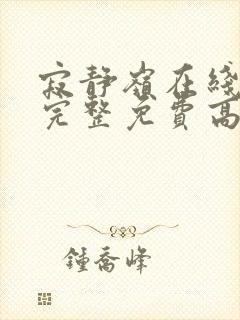 寂静嶺在綫
完整免費高
鍾喬峰